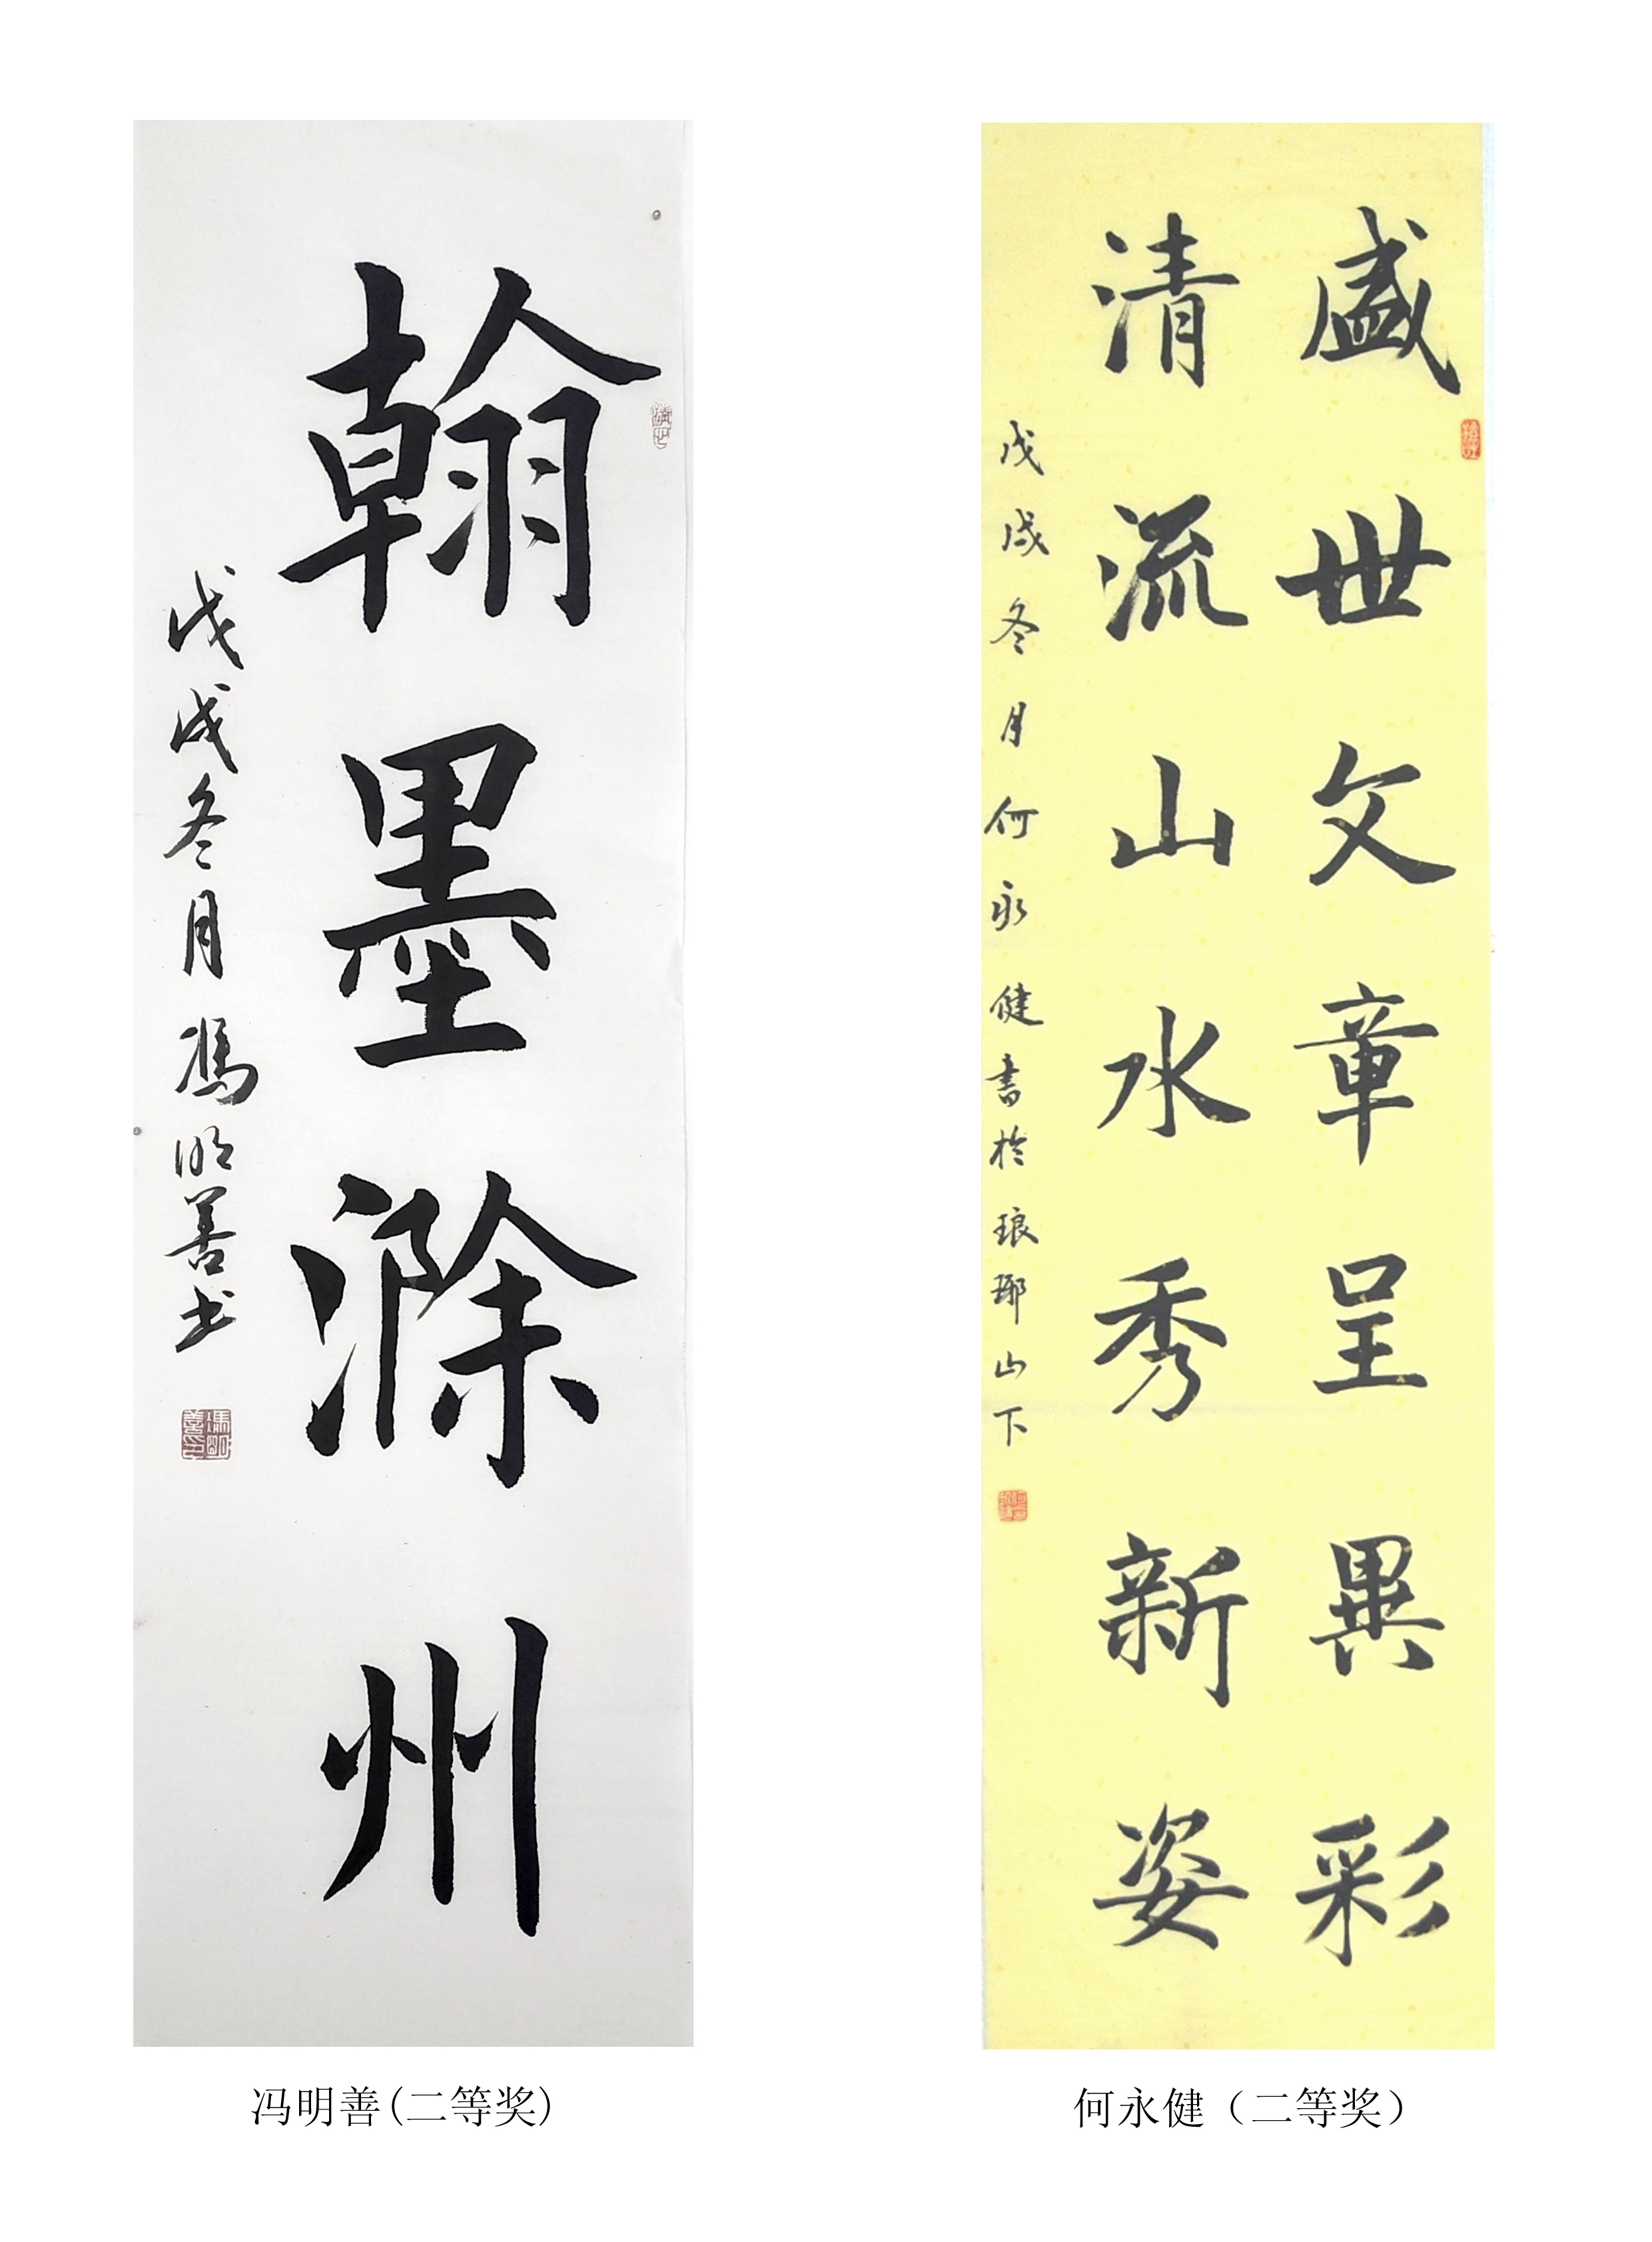 翰墨滁州
戊戌冬月馮明善书
冯明善(二等奖)
盛世文章呈異彩
清流山水秀新姿
戊戌冬月何永健書於琅琊山下
何永健（二等奖）